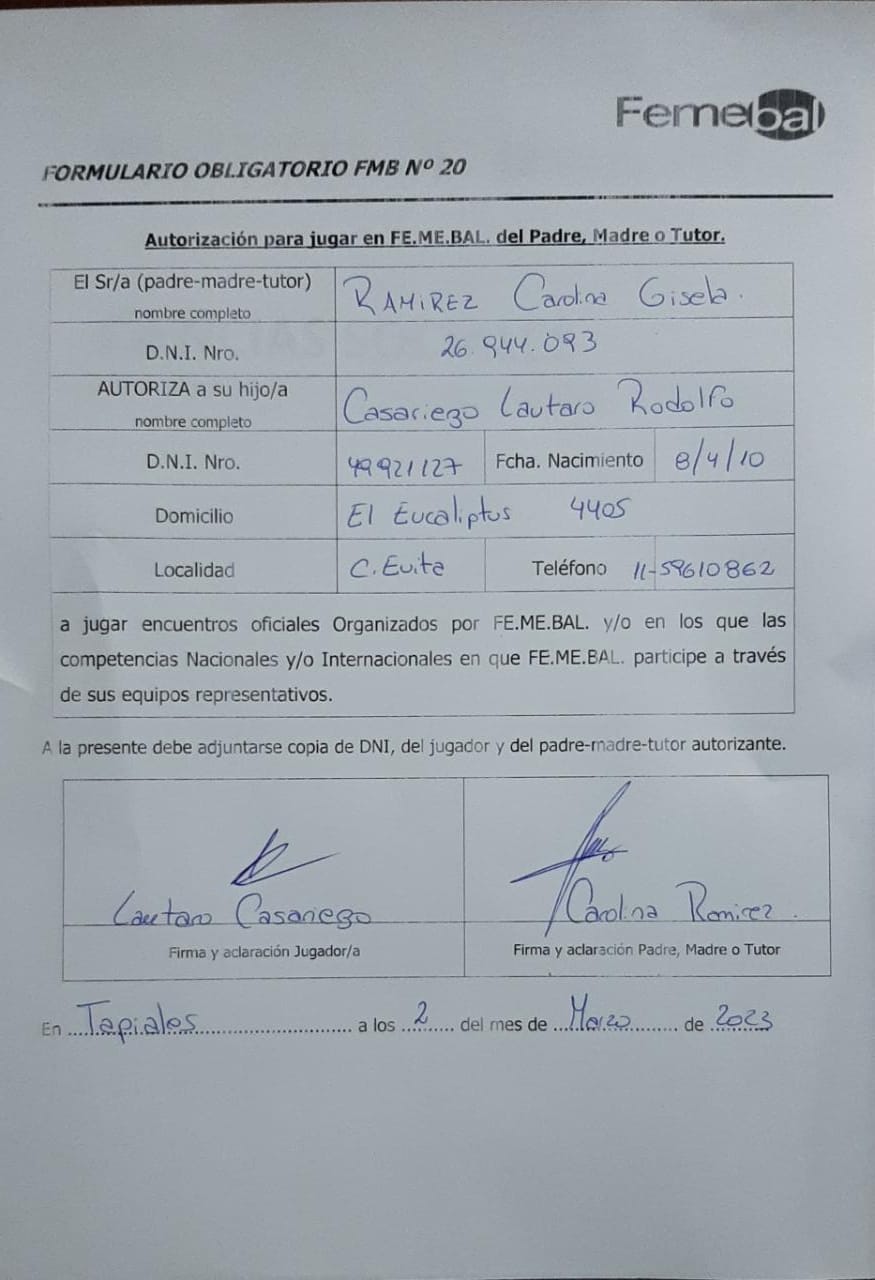 Femebal
FORMULARIO OBLIGATORIO FMB Nº 20
Autorización para jugar en FE.ME.BAL. del Padre, Madre o Tutor.
El Sr/a (padre-madre-tutor) RAMIREZ Carolina Gisela.
nombre completo
D.N.I. Nro. 26.944.093
AUTORIZA a su hijo/a Casariego Lautaro Rodolfo
nombre completo
D.N.I. Nro. 49921127 Fcha. Nacimiento 8/4/10
Domicilio El Eucaliptus 4405
Localidad C. Evita Teléfono 11-59610862
a jugar encuentros oficiales Organizados por FE.ME.BAL. y/o en los que las
competencias Nacionales y/o Internacionales en que FE.ME.BAL. participe a través
de sus equipos representativos.
A la presente debe adjuntarse copia de DNI, del jugador y del padre-madre-tutor autorizante.
Lautaro Casariego Carolina Ramirez.
Firma y aclaración Jugador/a Firma y aclaración Padre, Madre o Tutor
En Tapiales a los 2 del mes de Marzo de 2023